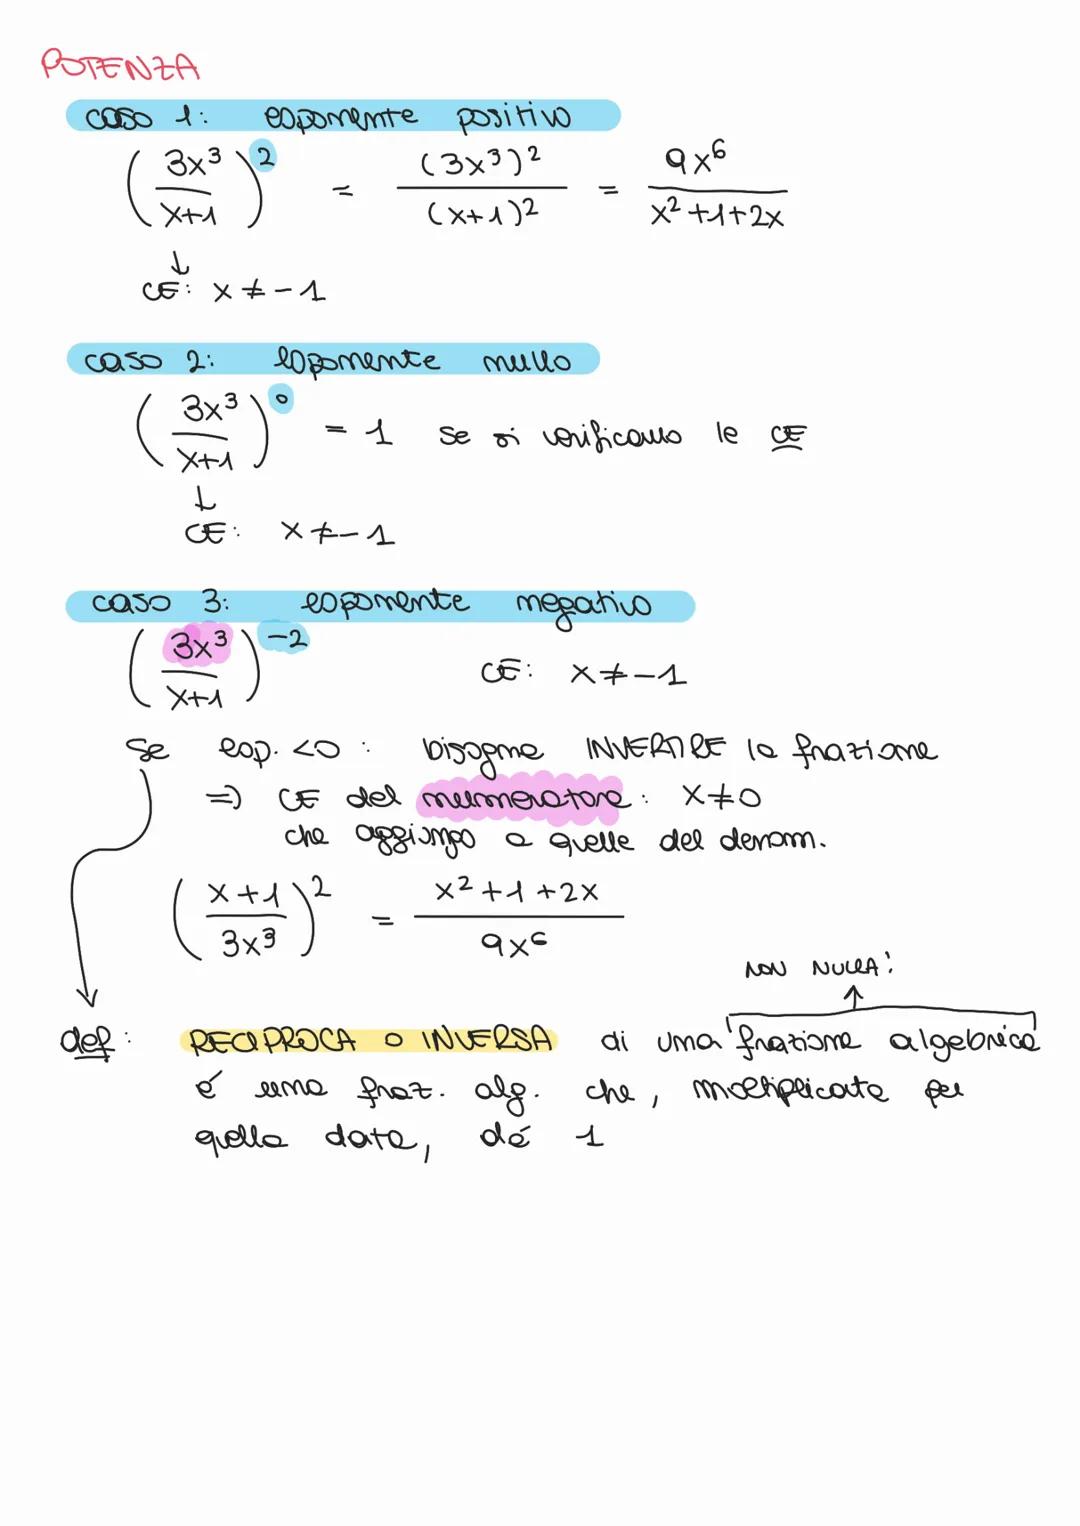 POTENZA
caso 1: esponente positivo
(3x³/x+1)² = (3x³)²/(x+1)² = 9x⁶/x²+1+2x
↓
CE: x ≠ -1
caso 2: esponente nullo
(3x³/x+1)⁰ = 1 se si verificano le CE
↓
CE: x ≠ -1
caso 3: esponente negativo
(3x³/x+1)⁻² CE: x ≠ -1
se esp. <0 : bisogna INVERTIRE la frazione
=> CE del numeratore: x≠0
che aggiungo a quelle del denom.
(x+1/3x³)² = x²+1+2x/9x⁶
NON NULLA!
def: RECIPROCA O INVERSA di una frazione algebrica
é una fraz. alg. che, moltiplicata per
quella data, dá 1